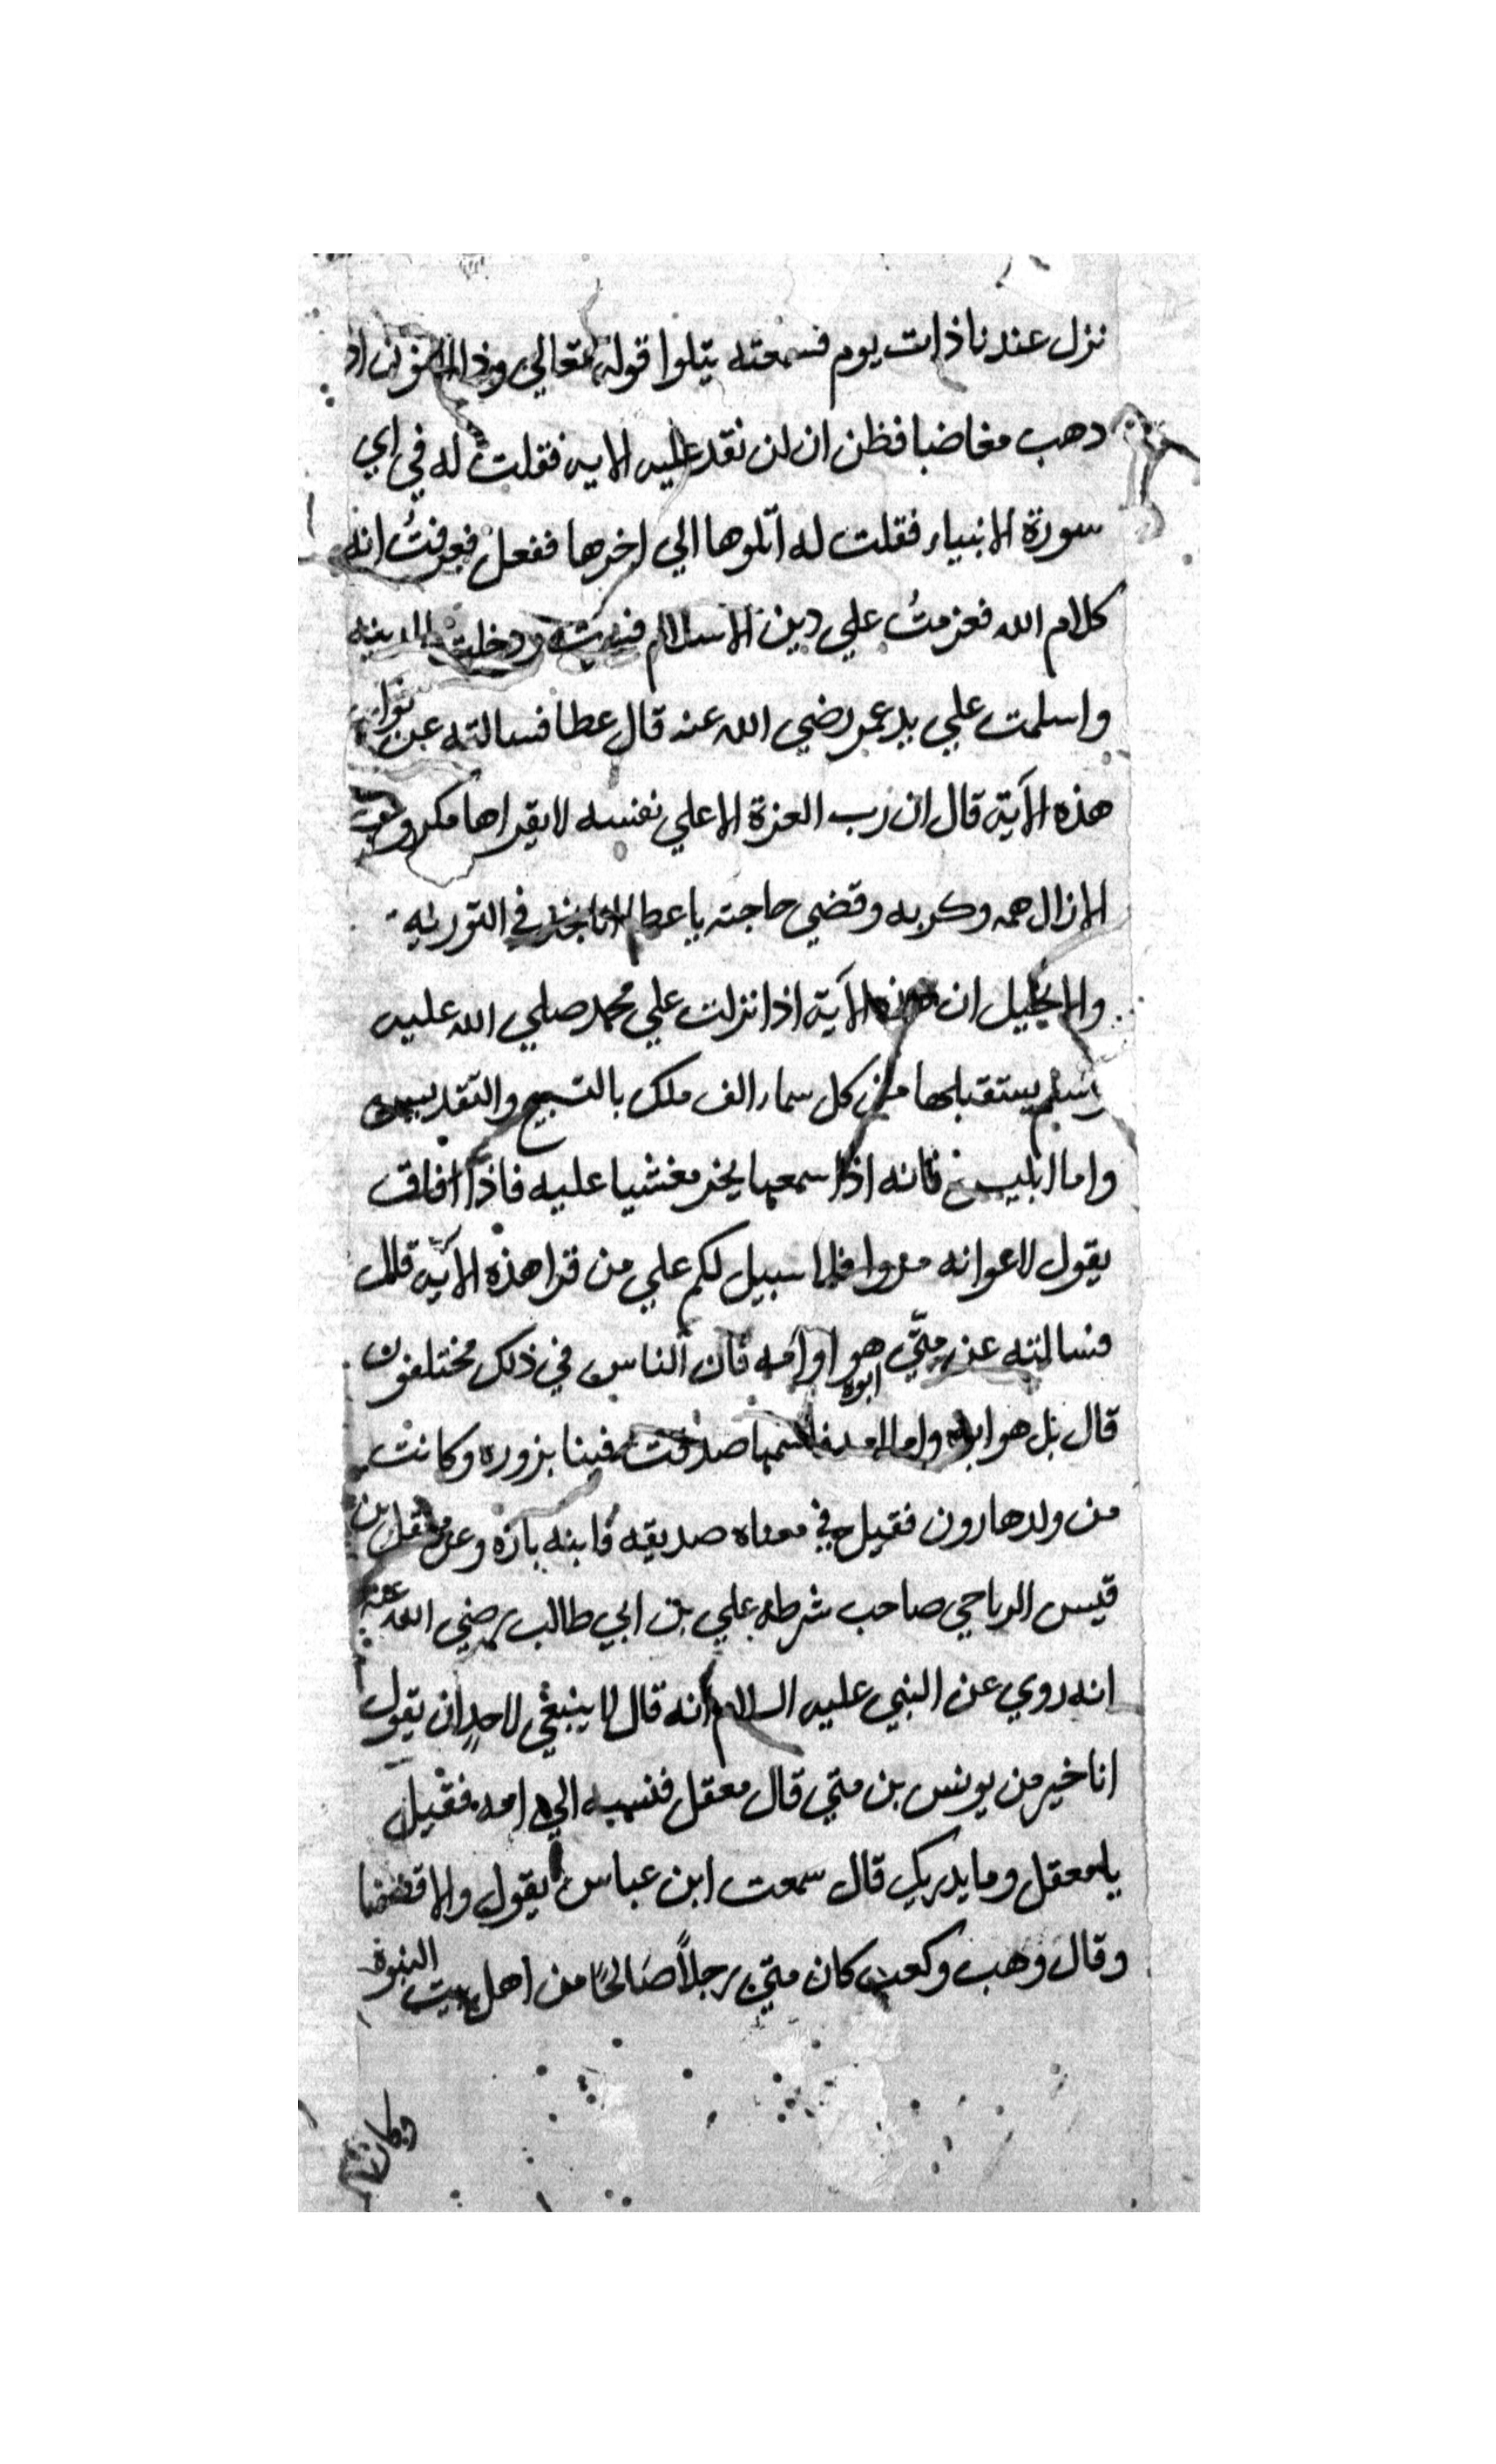 نزل عندنا ذات يوم فسمعته يتلوا قوله تعالي وذا النون اذ
دهب مغاضبا فظن ان لن نقدر عليه الايه فقلت له في اي
سورة الانبياء فقلت له اتلوها الي اخرها ففعل فعرفتُ انه
كلام الله فعزمتُ علي دين الاسلام ودخلت المدينه
واسلمت علي يد عمر رضي الله عنه قال عطا فسالته عن ثواب
هذه الآية قال ان رب العزة الا علي نفسه لا يقراها مكروب
الا زال همه وكربه وقضي حاجته يا عطا انا نجد في التوريه
والانجيل ان هذه الآية اذا نزلت علي محمد صلي الله عليه
وسلم يستقبلها من كل سماء الف ملك بالتسبيح والتقديس
واما ابليس فانه اذا سمعها يخر مغشيا عليه فاذا افاق
يقول لاعوانه مروا فلا سبيل لكم علي من قرا هذه الآيه قال
فسالته عن متّي هو ابوه او امه فان الناس في ذلك مختلفون
قال بل هو ابوه واما امه فاسمها صدقت فينا بزوره وكانت
من ولد هارون فقيل في معناه صديقه فابنه بازه وعن معقل بن
قيس الرياحي صاحب شرطه علي بن ابي طالب رضي الله عنه
انه روي عن النبي عليه السلام انه قال لا ينبغي لاحدٍ ان يقول
انا خير من يونس بن متي قال معقل فنسبه الي امه فقيل
يا معقل وما يدريك قال سمعت ابن عباس يقول والا قصمتا
وقال وهب وكعب كان متي رجلاً صَالحًا من اهل بيت النبوة
وكان